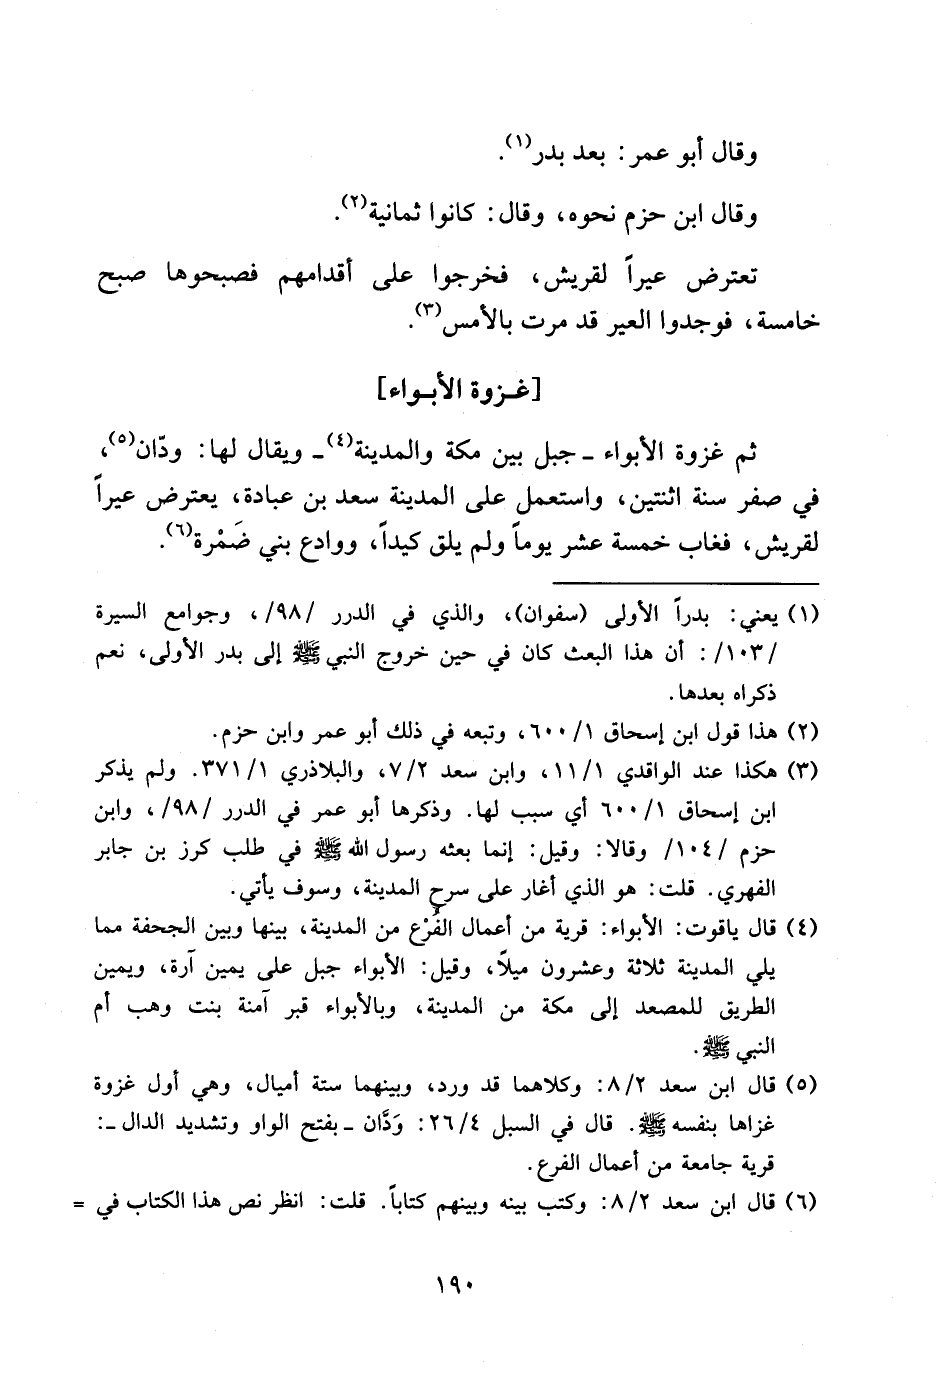 وقال أبو عمر: بعد بدر(١).
وقال ابن حزم نحوه، وقال: كانوا ثمانية(٢).
تعترض عيراً لقريش، فخرجوا على أقدامهم فصبحوها صبح
خامسة، فوجدوا العير قد مرت بالأمس(٣).
[غـزوة الأبـواء]
ثم غزوة الأبواء ـ جبل بين مكة والمدينة(٤) ـ ويقال لها: ودّان(٥)،
في صفر سنة اثنتين، واستعمل على المدينة سعد بن عبادة، يعترض عيراً
لقريش، فغاب خمسة عشر يوماً ولم يلق كيداً، ووادع بني ضَمْرة(٦).
(١) يعني: بدراً الأولى (سفوان)، والذي في الدرر /٩٨/، وجوامع السيرة
/١٠٣/: أن هذا البعث كان في حين خروج النبي ﷺ إلى بدر الأولى، نعم
ذكراه بعدها.
(٢) هذا قول ابن إسحاق ٦٠٠/١، وتبعه في ذلك أبو عمر وابن حزم.
(٣) هكذا عند الواقدي ١١/١، وابن سعد ٧/٢، والبلاذري ٣٧١/١. ولم يذكر
ابن إسحاق ٦٠٠/١ أي سبب لها. وذكرها أبو عمر في الدرر /٩٨/، وابن
حزم /١٠٤/ وقالا: وقيل: إنما بعثه رسول الله ﷺ في طلب كرز بن جابر
الفهري. قلت: هو الذي أغار على سرح المدينة، وسوف يأتي.
(٤) قال ياقوت: الأبواء: قرية من أعمال الفُرْع من المدينة، بينها وبين الجحفة مما
يلي المدينة ثلاثة وعشرون ميلاً، وقيل: الأبواء جبل على يمين آرة، ويمين
الطريق للمصعد إلى مكة من المدينة، وبالأبواء قبر آمنة بنت وهب أم
النبي ﷺ.
(٥) قال ابن سعد ٨/٢: وكلاهما قد ورد، وبينهما ستة أميال، وهي أول غزوة
غزاها بنفسه ﷺ. قال في السبل ٢٦/٤: وَدَّان ـ بفتح الواو وتشديد الدال ـ:
قرية جامعة من أعمال الفرع.
(٦) قال ابن سعد ٨/٢: وكتب بينه وبينهم كتاباً. قلت: انظر نص هذا الكتاب في =
١٩٠